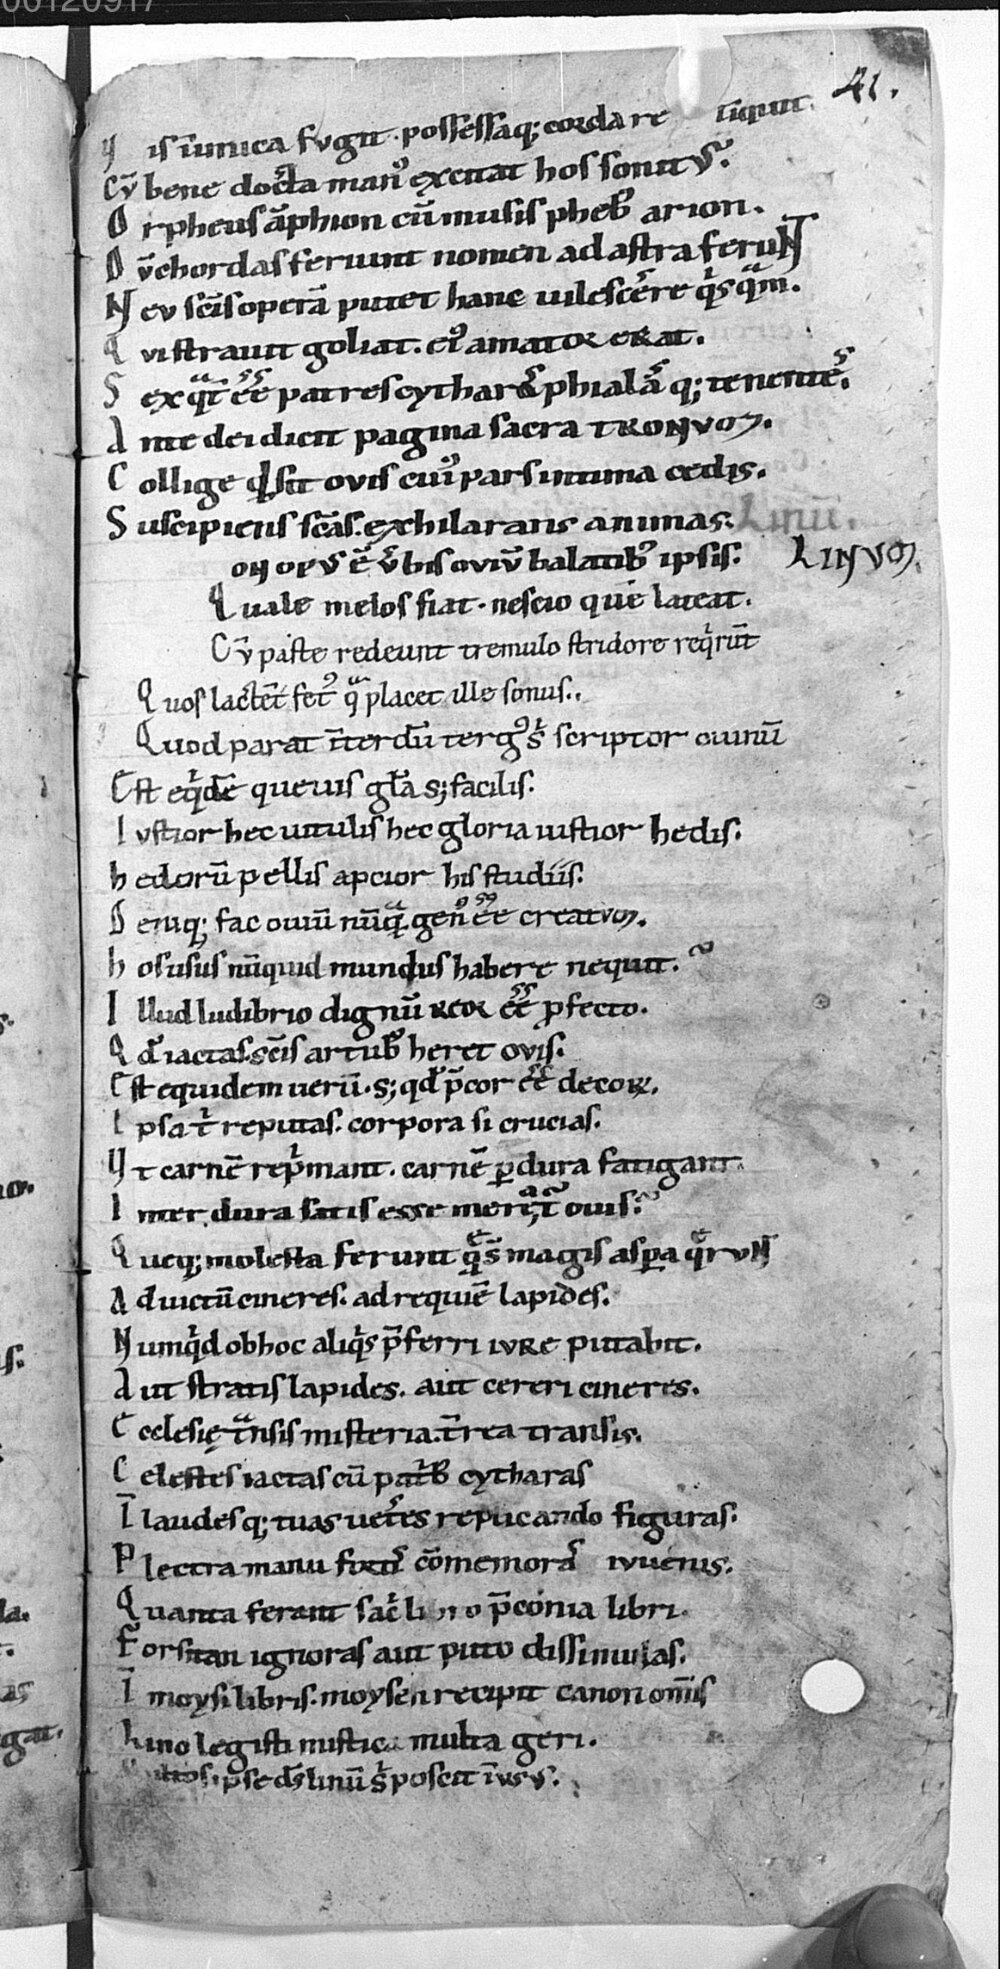 41.
Vis inimica fugit. possessaq; corda re  īquit.
Cū bene docta man᷒ excitat hos sonitꝰ.
Orpheus āphion cū musis pheb᷒ arion.
Dū chordas feriunt nomen ad astra feruNT
Neu scīs operā putet hanc uilescere qͥsqᵃm.
Qui strauit goliat. ei᷒ amator erat.
Sex qᵃt̄ eē patres cytharas phialas q; tenentes.
Ante dei dicit pagina sacra tronum.
Collige qd sit ouis cui᷒ pars intima cedis.
Suscipiens scās. exhilarans animas.
Linū.
on opus ē ūbis ouiū balatib᷒ ipsis. LINUM.
Quale melos fiat. nescio quē lateat.
Cū paste redeunt tremulo stridore reqͥrūt
Quos lactēt fet᷒ qᵃ placet ille sonus.
Quod parat īterdū terg᷒ s; scriptor ouinū
Est eqͥdē queuis glā s; facilis.
Iustior hec uitulis hec gloria iustior hedis.
hedorū pellis apcior his studiis.
Deniq; fac ouiū nūqᵃ. gen᷒ eē creatum.
hos usus nūquid mundus habere nequit.
Illud ludibrio dignū reor eē ꝓfecto.
Qd iactas. scīs artub᷒ heret ouis.
Est equidem uerū. s; qd p̄cor eē decor.
Ipsa t̄ reputas. corpora si crucias.
Vt carnē repͥmant. carnē ꝑdura fatigant.
Inter dura satis esse meret̄ ouis.
Queq; molesta ferunt qͥs magis asꝑa qͥruNT
Ad uictū cineres. ad requiē lapides.
Numqͥd ob hoc aliqͥs p̄ferri iure putabit.
Aut stratis lapides. aut cereri cineres.
Ecclesię tᵃnsis misteria. t̄rea transis.
Celestes iactas cū patͥb᷒ cytharas
Ī laudesq; tuas uetēs replicando figuras.
Plectra manu fixūs cōmemoras iuuenis.
Quanta ferant sacͥ lino p̄conia libri.
Forsitan ignoras aut puto dissimulas.
Ī moysi libris. moysen recipit canon omīs
Lino legisti mistica multa geri.
ipse dꝰ linū s; poscit ī usꝰ.